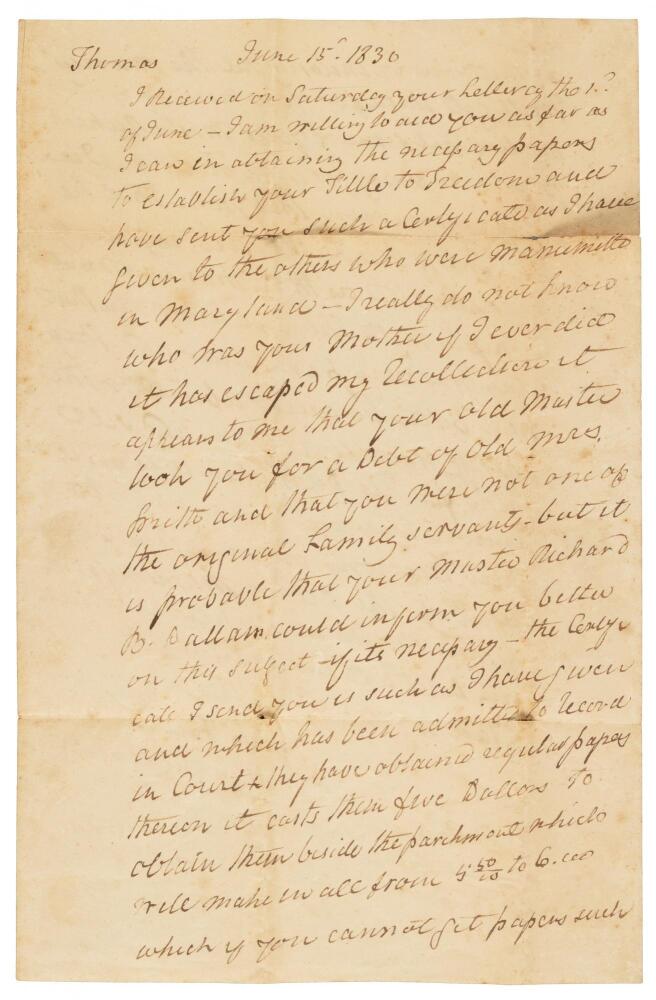 Thomas June 15th. 1830
I Received on Saturday your Letter of the 1st.
of June – I am willing to aid you as far as
I can in obtaining the necessary papers
to establish your Title to Freedom and
have sent you such a Certificate as I have
given to the others who were manumitted
in Maryland – I really do not know
who was your Mother if I ever did
it has escaped my Recollection it
appears to me that your old Master
took you for a Debt of Old Mrs.
Smith and that you were not one of
the original Family servants – but it
is probable that your Master Richard
B. Dallam could inform you better
on this subject – if its necessary – the Certifi
cate I send you is such as I have given
and which has been admitted to Record
in Court & they have obtained regular papers
thereon it costs them five Dollars to
obtain them beside the parchment which
will make in all from 5 50/10 to 6.00
which if you cannot get papers such